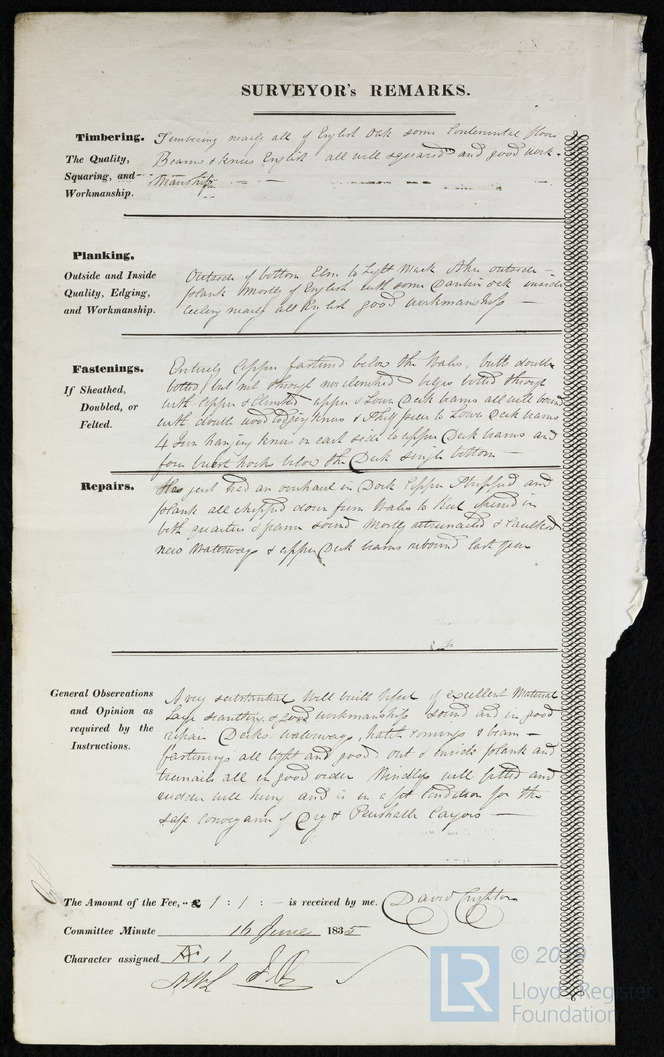 SURVEYOR's REMARKS.
Timbering.
The Quality,
Squaring, and
Workmanship.
Timbering nearly all of English Oak some Continental floors
Beams & knees English all well squared and good work-
manship
Planking.
Outside and Inside
Quality, Edging,
and Workmanship.
Outside of bottom Elm to Light Mark other outside
plank Mostly of English with some Dantzic Oak inside
Ceiling nearly all English good workmanship
Fastenings.
If Sheathed,
Doubled, or
Felted.
Entirely Copper fastened below the Wales, butts double
bolted, but not through nor clenched bilges bolted through
with Copper & Clenched upper & Lower Deck beams all well bound
with double wood lodging knees & Shelf pieces to Lower Deck beams
4 Iron hanging knees on each side to upper Deck beams and
four breast hooks below the Deck single bottom
Repairs.
Has just had an overhaul in Dock Copper Stripped and
plank all chipped down from Wales to Keel opened in
both quarters & frame sound Mostly retrenailed & Caulked
new Waterway & upper Deck beams rebound last year
General Observations
and Opinion as
required by the
Instructions.
A very substantial Well built Vessel of excellent Material
Large scantling & good workmanship sound and in good
repair Decks waterways, hatch comings & beam
fastenings all tight and good out & inside plank and
treenails all in good order Windlass well fitted and
rudder well hung and is in a fit Condition for the
safe conveyance of Dry & Perishable Cargoes
The Amount of the Fee, £ 1 : 1 : - is received by me. David Crighton
Committee Minute 16 June 1835
Character assigned Æ 1
© 20
Lloyd's Register
Foundation
LR